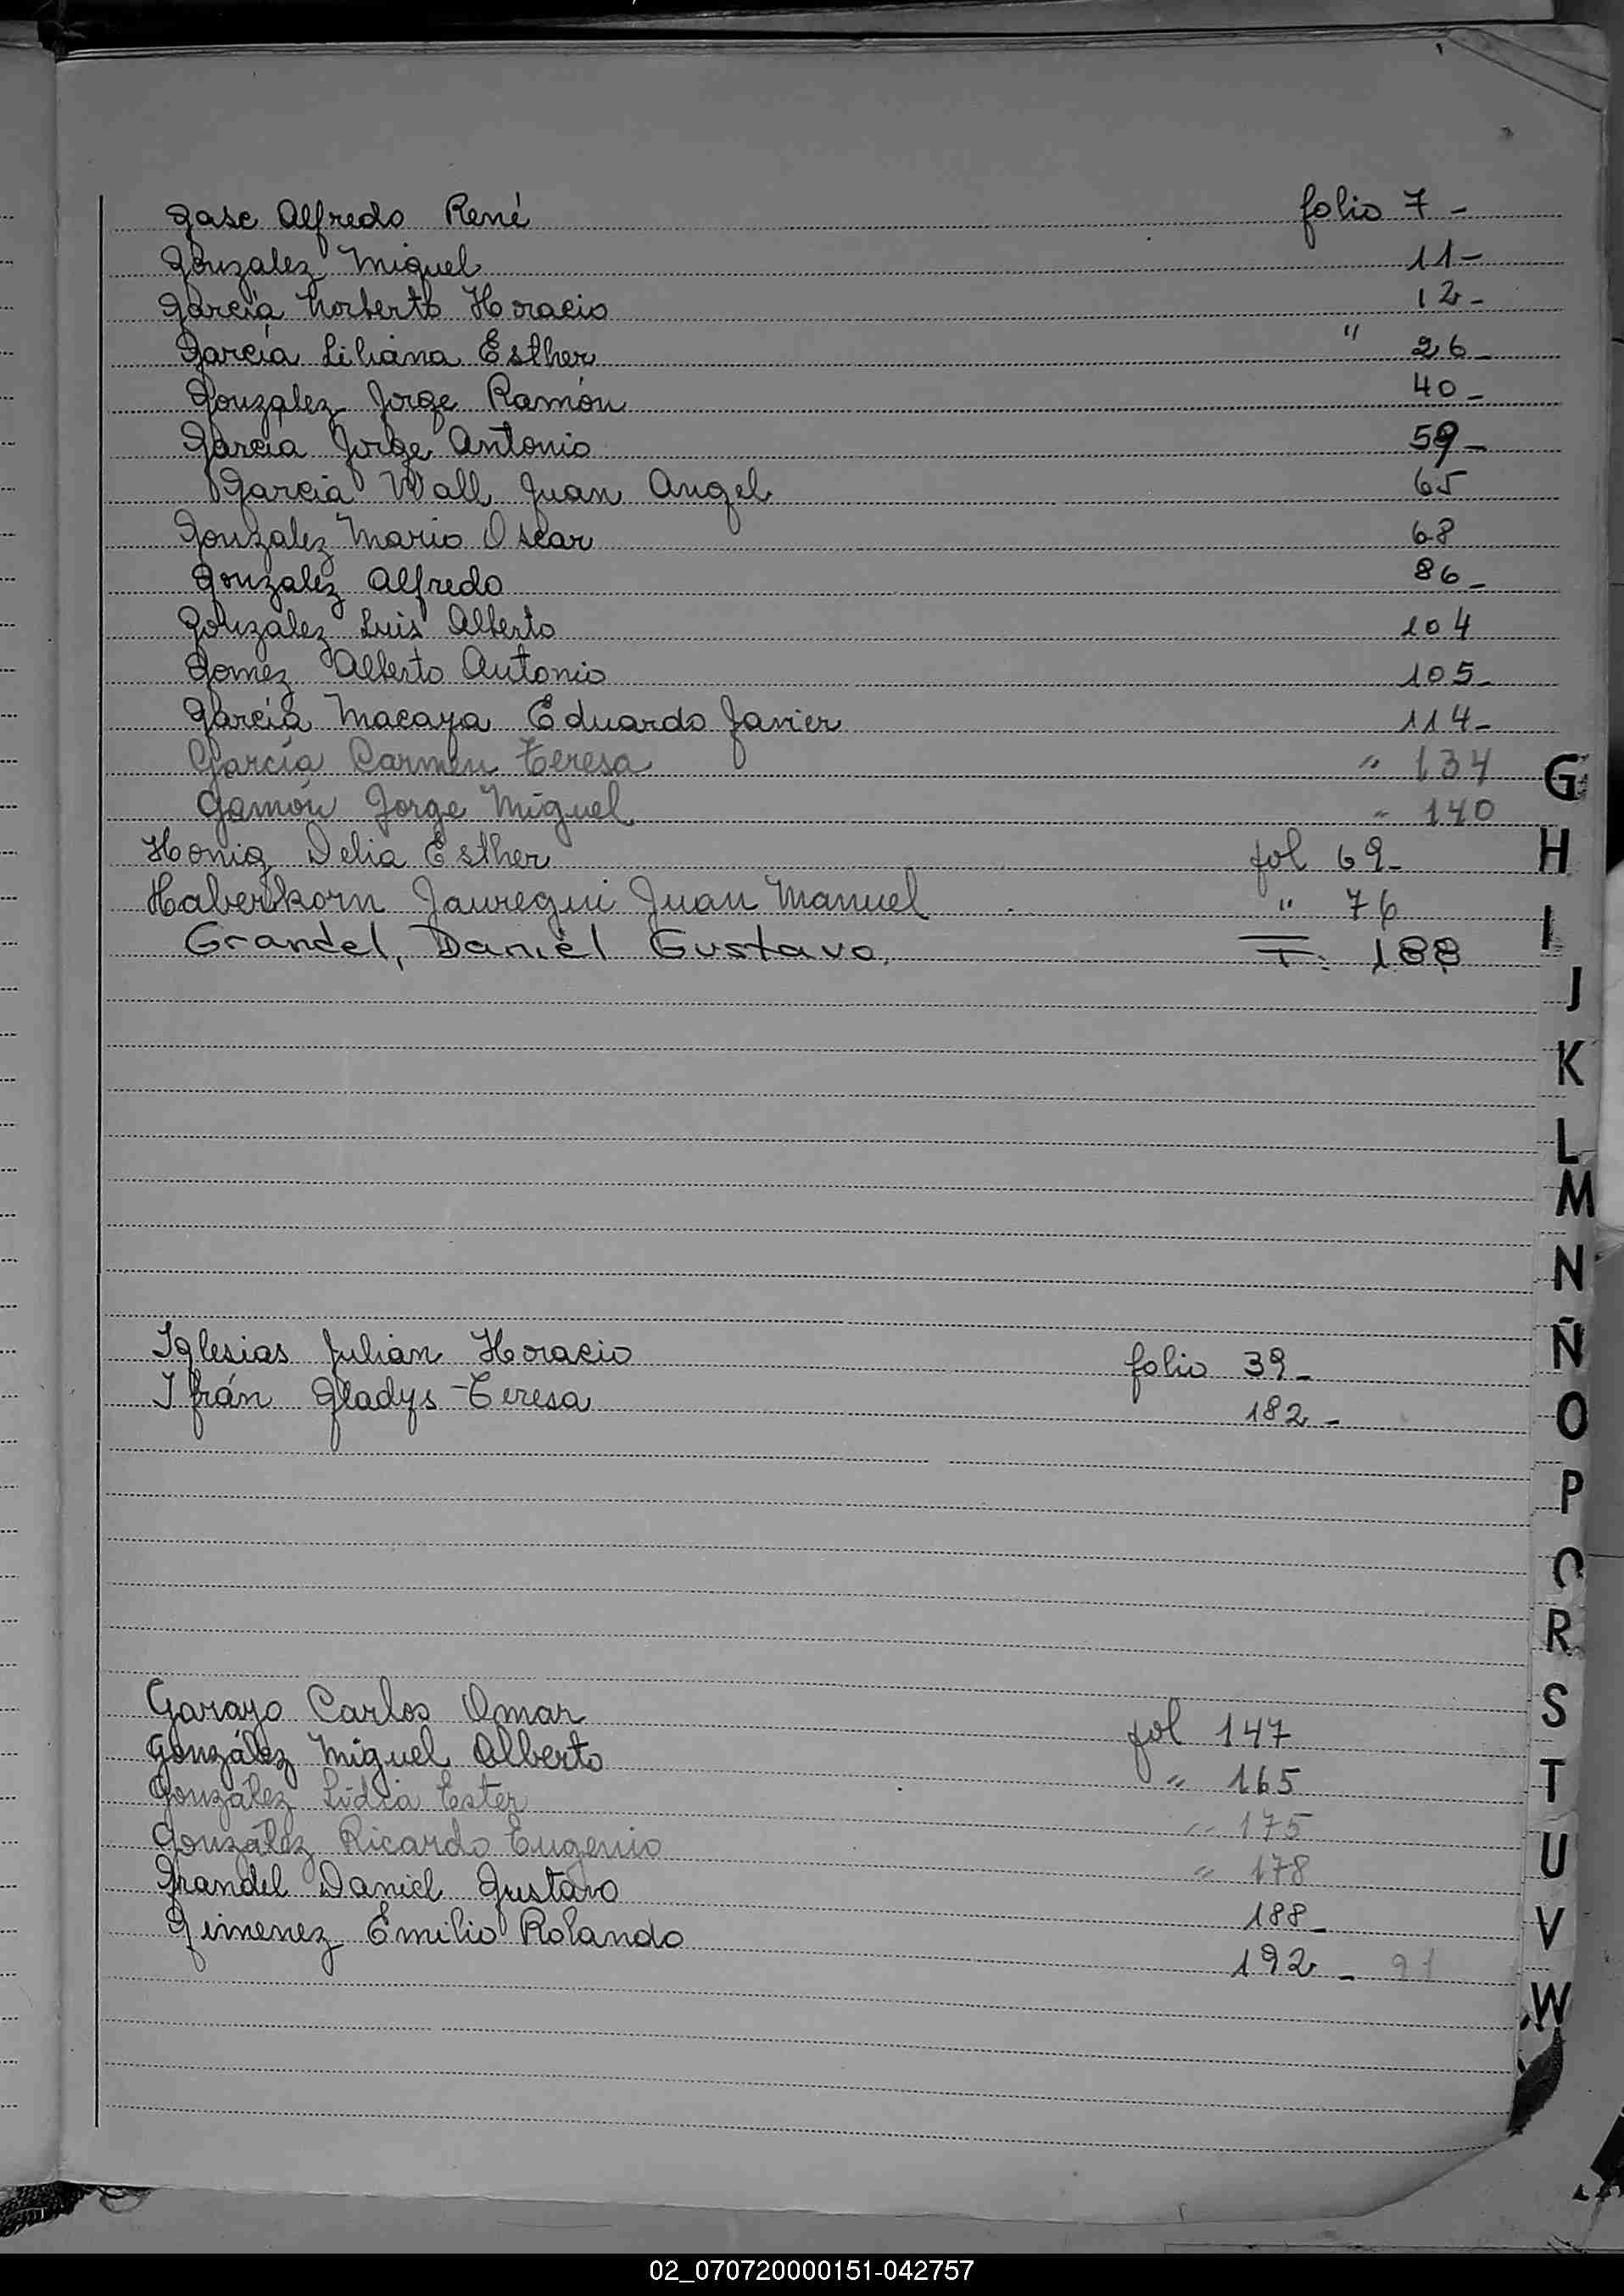 Gasc Alfredo René folio 7 -
Gonzalez Miguel 11 -
García Norberto Horacio 12 -
García Liliana Esther " 26 -
Gonzalez Jorge Ramón 40 -
Garcia Jorge Antonio 59 -
Garcia Wall Juan Angel 65
Gonzalez Mario Oscar 68
Gonzalez Alfredo 86 -
Gonzalez Luis Alberto 104
Gomez Alberto Antonio 105 -
García Macaya Eduardo Javier 114 -
García Carmen Teresa " 134
Gamón Jorge Miguel " 140
Honig Delia Esther fol 69 -
Haberkorn Jauregui Juan Manuel " 76
Grandel, Daniel Gustavo. F. 188
Iglesias Julián Horacio folio 39 -
Ifrán Gladys Teresa 182 -
Garayo Carlos Omar fol 147
González Miguel Alberto " 165
González Lidia Ester " 175
González Ricardo Eugenio " 178
Grandel Daniel Gustavo 188 -
Gimenez Emilio Rolando 192 - 91
G
H
I
J
K
L
M
N
Ñ
O
P
Q
R
S
T
U
V
W
02_070720000151-042757